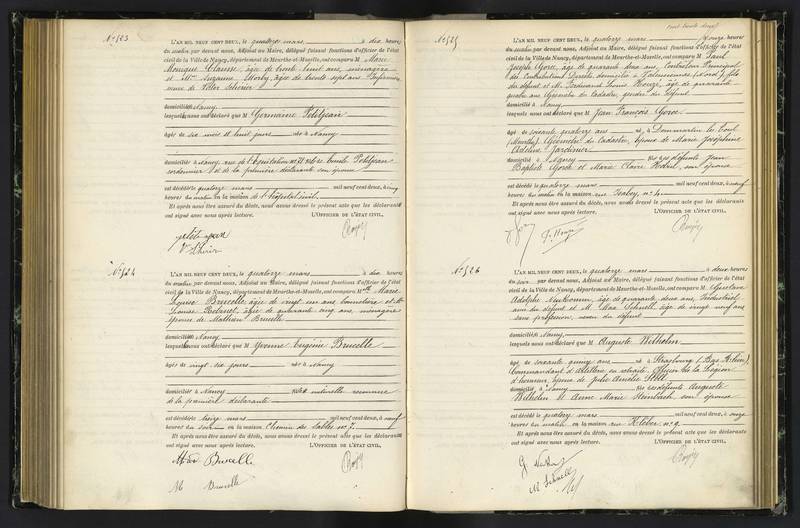 N° 523
L'AN MIL NEUF CENT DEUX, le quatorze mars à dix heures
du matin par devant nous, Adjoint au Maire, délégué faisant fonctions d'officier de l'état
civil de la Ville de Nancy, département de Meurthe-et-Moselle, ont comparu M Marie
Monique Clausse, âgée de trente huit ans, ménagère
et Mme Suzanne âgée de trente sept ans
domiciliés à Nancy
lesquels nous ont déclaré que M Germaine Petitjean
âgée de six mois et huit jours née à Nancy
domiciliée à Nancy, rue de l'Équitation fille de Emile Petitjean
cordonnier et de la première déclarante son épouse
est décédée le quatorze mars mil neuf cent deux, à cinq
heures du matin en la maison de l'hôpital civil.
Et après nous être assuré du décès, nous avons dressé le présent acte que les déclarants
ont signé avec nous après lecture. L'OFFICIER DE L'ÉTAT CIVIL,
N° 524
L'AN MIL NEUF CENT DEUX, le quatorze mars à dix heures
du matin par devant nous, Adjoint au Maire, délégué faisant fonctions d'officier de l'état
civil de la Ville de Nancy, département de Meurthe-et-Moselle, ont comparu Mlle Marie
Louise Brucelle, âgée de vingt un ans et Me
Louise âgée de quarante cinq ans, ménagère
épouse de Mathieu Brucelle
domiciliés à Nancy
lesquels nous ont déclaré que M Yvonne Eugénie Brucelle
âgée de vingt six jours née à Nancy
domiciliée à Nancy fille naturelle reconnue
de la première déclarante
est décédée le treize mars mil neuf cent deux, à neuf
heures du soir en la maison Chemin des Sables n° 7.
Et après nous être assuré du décès, nous avons dressé le présent acte que les déclarants
ont signé avec nous après lecture. L'OFFICIER DE L'ÉTAT CIVIL,
Brucelle
Brucelle
N° 525
L'AN MIL NEUF CENT DEUX, le quatorze mars à onze heures
du matin par devant nous, Adjoint au Maire, délégué faisant fonctions d'officier de l'état
civil de la Ville de Nancy, département de Meurthe-et-Moselle, ont comparu M Paul
Joseph Gorce, âgé de quarante deux ans, Contrôleur Principal
des Contributions Directes domicilié à Valenciennes (Nord), fils
du défunt et M. Ferdinand Louis Houzé, âgé de quarante
quatre ans, Géomètre du Cadastre, gendre du défunt
domicilié à Nancy
lesquels nous ont déclaré que M Jean François Gorce
âgé de soixante quatorze ans né à Dommartin les Toul
(Meurthe), Géomètre du Cadastre, époux de Marie Joséphine
Adeline Jardinier
domicilié à Nancy fils des défunts Jean
Baptiste Gorce et Marie Claire son épouse
est décédé le quatorze mars mil neuf cent deux, à neuf
heures du matin en la maison rue Isabey, n°
Et après nous être assuré du décès, nous avons dressé le présent acte que les déclarants
ont signé avec nous après lecture. L'OFFICIER DE L'ÉTAT CIVIL,
N° 526
L'AN MIL NEUF CENT DEUX, le quatorze mars à deux heures
du soir par devant nous, Adjoint au Maire, délégué faisant fonctions d'officier de l'état
civil de la Ville de Nancy, département de Meurthe-et-Moselle, ont comparu M Gustave
Adolphe âgé de quarante deux ans, Industriel
ami du défunt et M. Max Schnell, âgé de vingt neuf ans
sans profession, neveu du défunt
domiciliés à Nancy
lesquels nous ont déclaré que M Auguste Wilhelm
âgé de soixante quinze ans né à Strasbourg (Bas Rhin),
Commandant d'Artillerie en retraite, Officier de la Légion
d'honneur, époux de Julie Amélie
domicilié à Nancy fils des défunts Auguste
Wilhelm et Anne Marie Steinbach son épouse
est décédé le quatorze mars mil neuf cent deux, à onze
heures du matin en la maison rue Kléber n° 9.
Et après nous être assuré du décès, nous avons dressé le présent acte que les déclarants
ont signé avec nous après lecture. L'OFFICIER DE L'ÉTAT CIVIL,
M Schnell